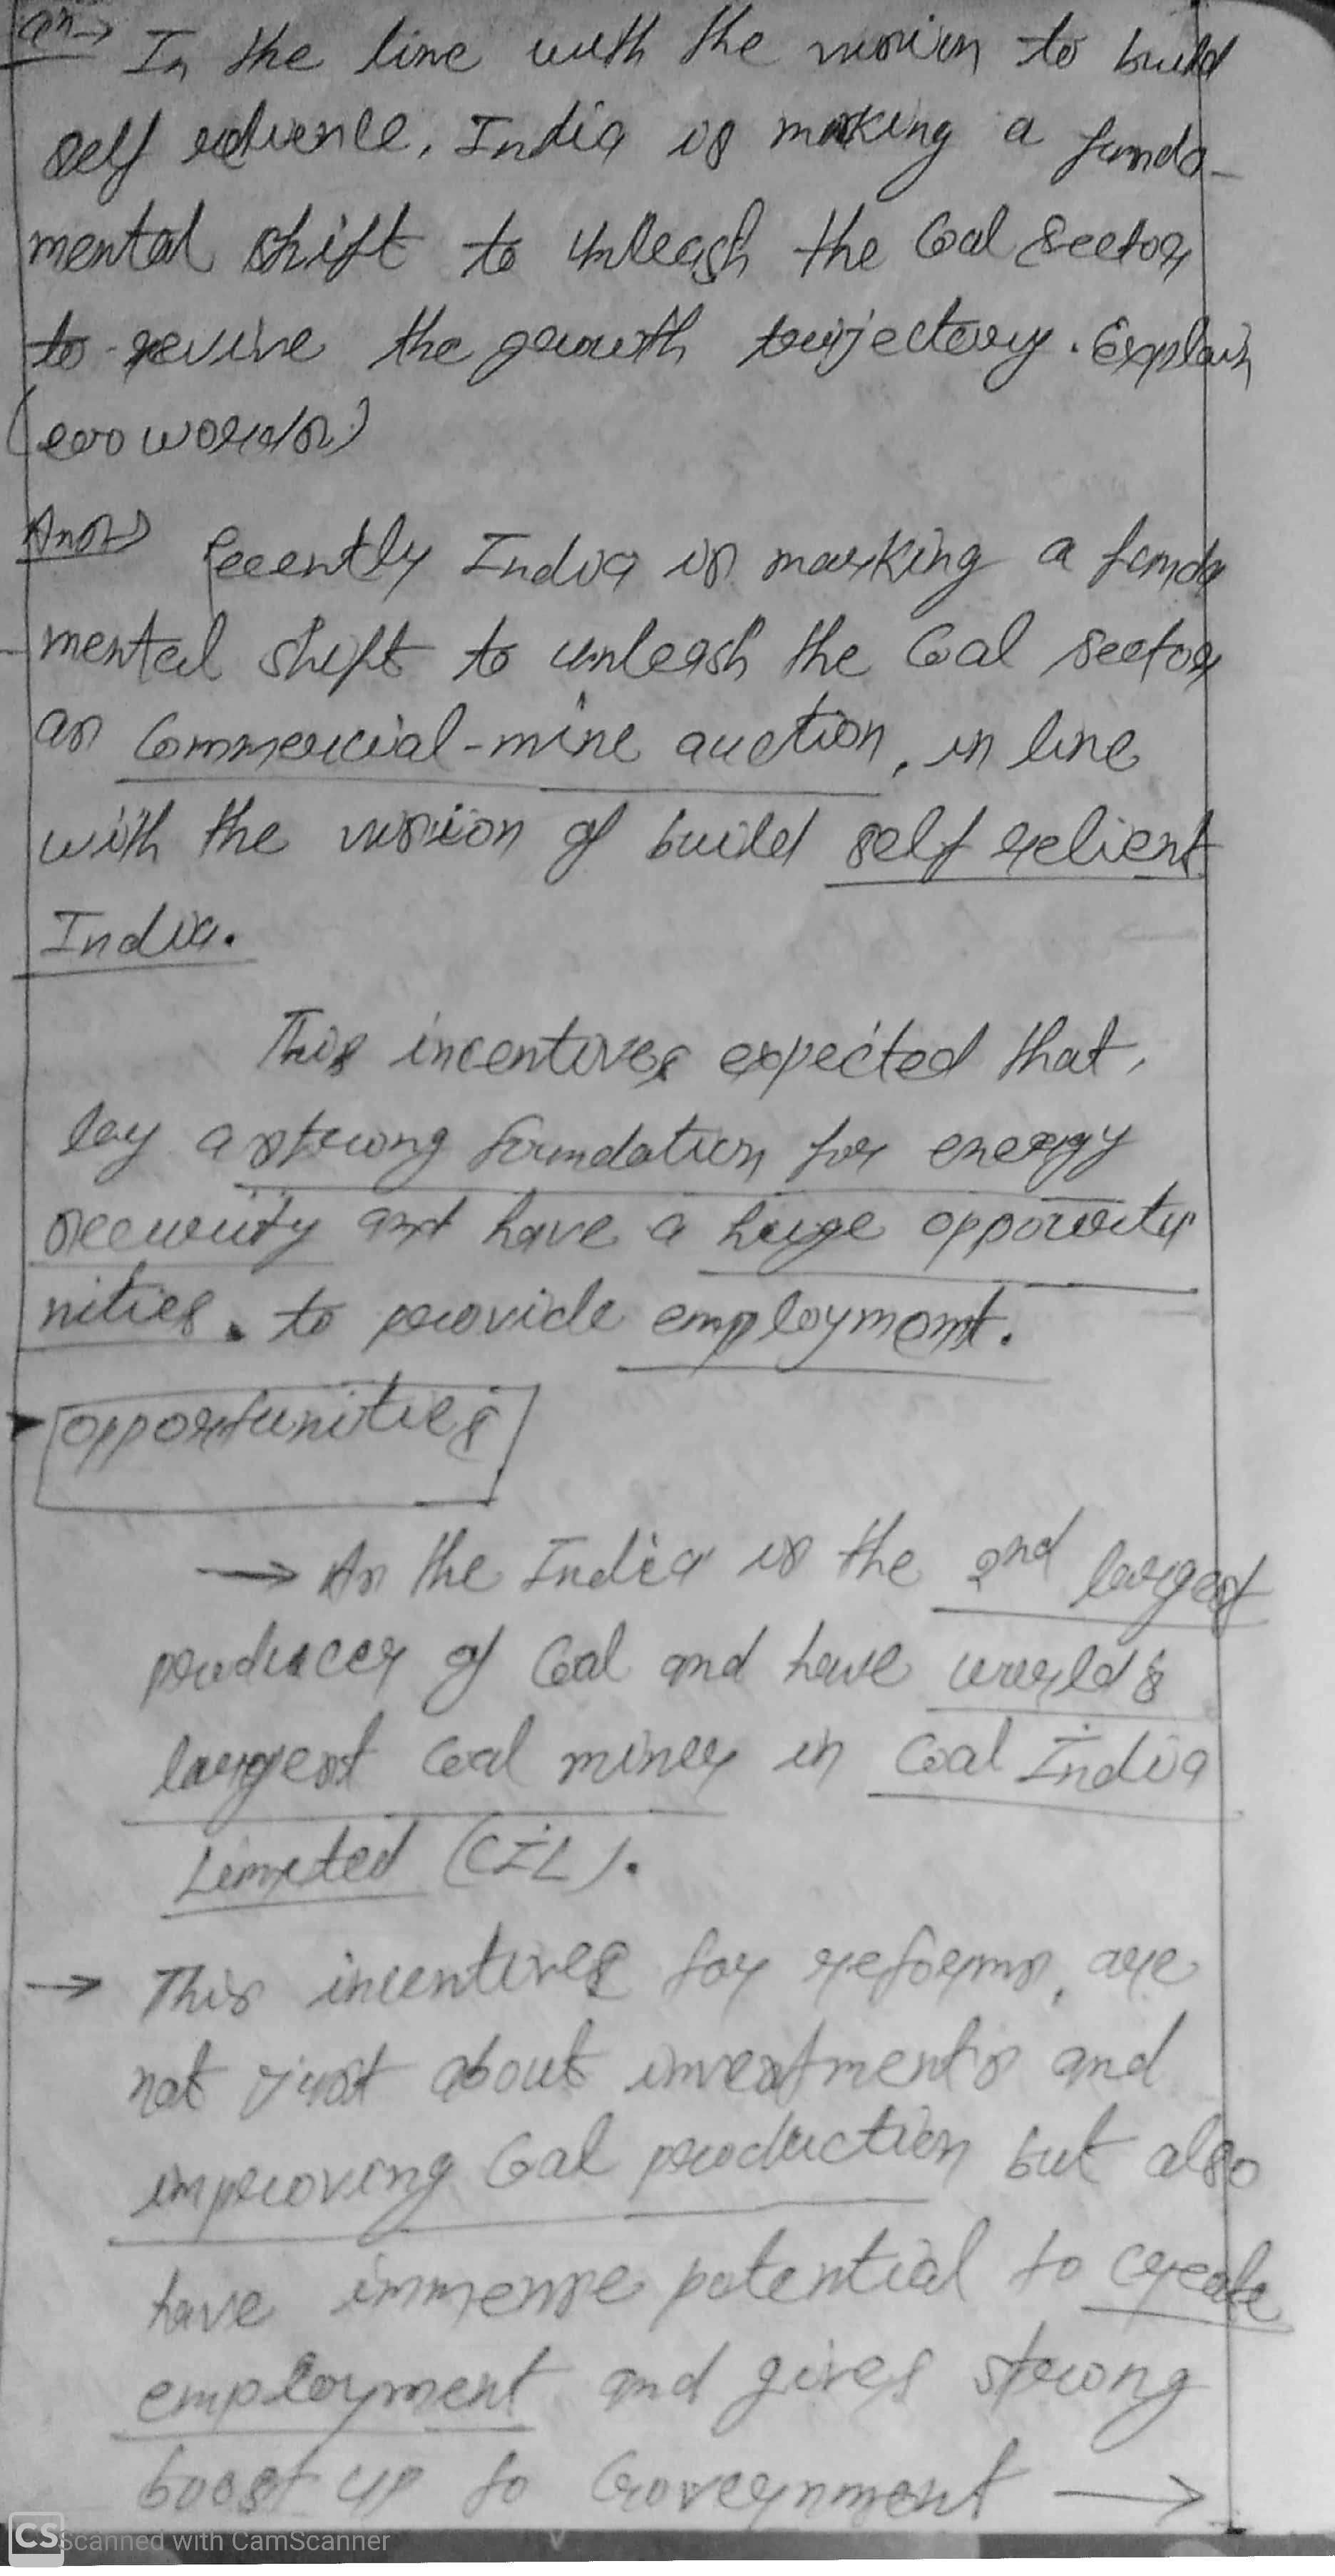 Qn→ In the line with the vision to build
self relience, India is making a funda-
mental shift to unleash the Coal Sector
to revive the growth trijectory. Explain
(200 words)
Ans→ Recently India is marking a funda
-mental shift to unleash the Coal sector
as Commercial-mine auction, in line
with the vision of build self relient
India.
This incentives expected that,
lay a strong foundation for energy
security and have a huge opportu
nities. to provide employment.
opportunities
→ As the India is the 2nd largest
producer of Coal and have world's
largest coal miner in Coal India
Limited (CIL).
→ This incentives for reforms, are
not just about investments and
improving Coal production but also
have immense potential to create
employment and gives strong
boost up to Government →
CS Scanned with CamScanner